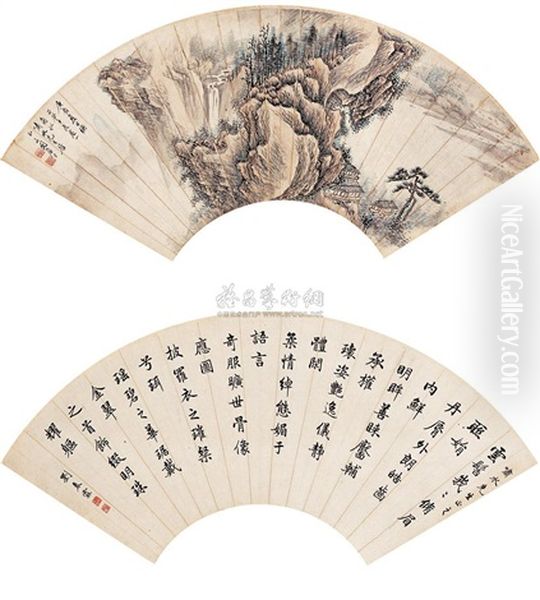 雲髻峩〻脩眉
聯娟
丹脣外朗皓齒
內鮮
明眸善睞靨輔
承權
瓌姿艷逸儀靜
體閑
柔情綽態媚于
語言
奇服曠世骨像
應圖
披羅衣之璀粲
兮珥
瑤碧之華琚戴
金翠
之首飾綴明珠
耀軀
劉春霖
NiceArtGallery.com